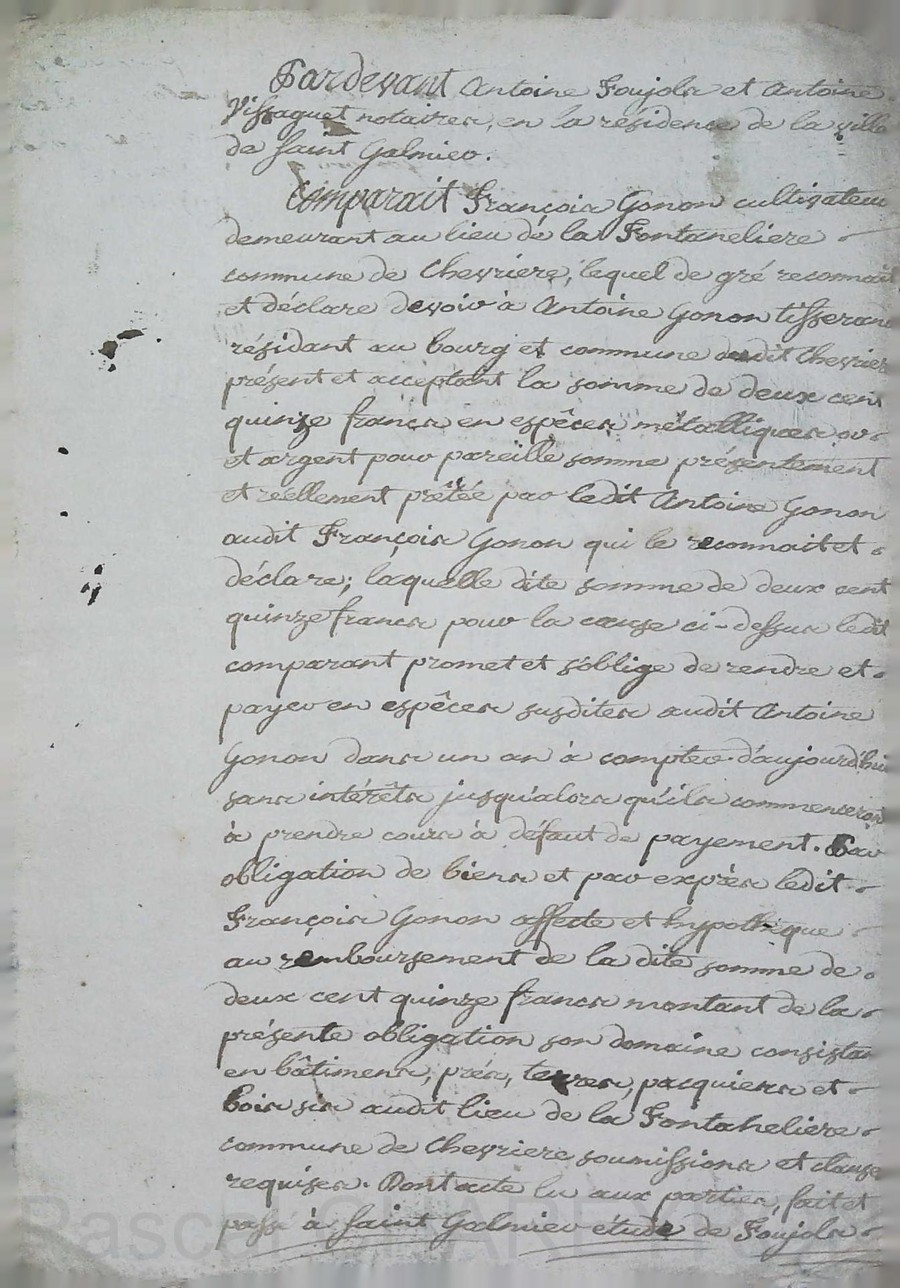 Pardevant Antoine Foujols et Antoine
Vissaguet notaires, en la résidence de la ville
de Saint Galmier.
Comparait François Gonon cultivateur
demeurant au lieu de la Fontaneliere
commune de Chevriere, lequel de gré reconnait
et déclare devoir à Antoine Gonon tisseran
résidant au bourg et commune dudit Chevrier
présent et acceptant la somme de deux cent
quinze francs en espêces métalliques or
et argent pour pareille somme présentement
et réellement prêtée par ledit Antoine Gonon
audit François Gonon qui le reconnait et
déclare; laquelle dite somme de deux cent
quinze francs pour la cause ci-dessus ledit
comparant promet et s'oblige de rendre et
payer en espêces susdites audit Antoine
Gonon dans un an à compter d'aujourd'hui
sans intérêts jusqu'alors qu'ils commenceront
à prendre cours à défaut de payement. Par
obligation de biens et par exprès ledit
François Gonon affecte et hypothique
au remboursement de la dite somme de
deux cent quinze francs montant de la
présente obligation son domaine consistan
en bâtimens, prés, terres, pacquiers et
bois sis audit lieu de la Fontaneliere
commune de Chevriere soumissions et clause
requises. Dont acte lu aux parties, fait et
passé à Saint Galmier étude de Foujols